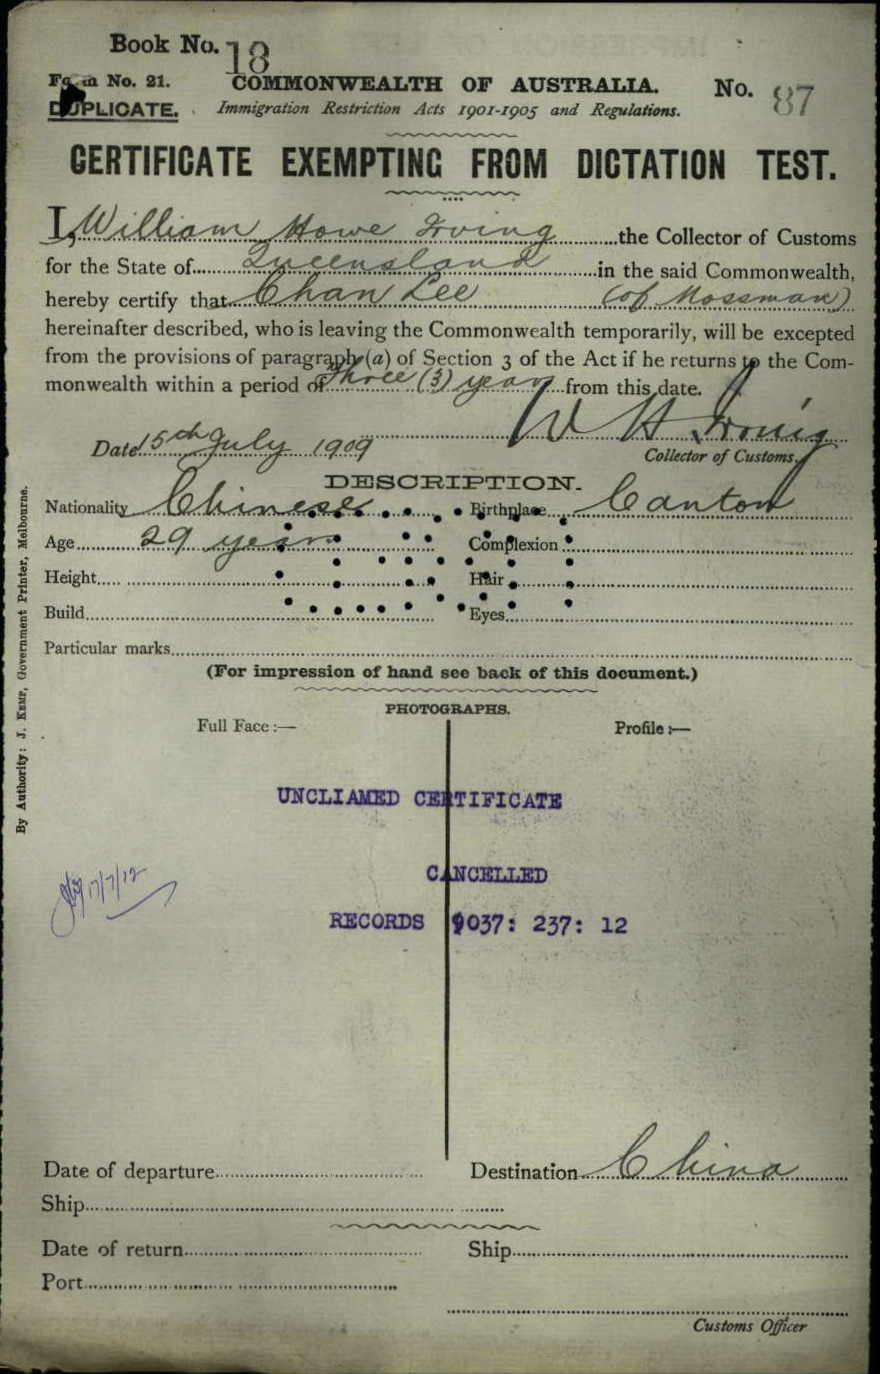 Book No. 18
Form No. 21. COMMONWEALTH OF AUSTRALIA. No. 87
DUPLICATE. Immigration Restriction Acts 1901-1905 and Regulations.
CERTIFICATE EXEMPTING FROM DICTATION TEST.
I, William Howe Irving the Collector of Customs
for the State of Queensland in the said Commonwealth,
hereby certify that Chan Lee (of Mossman)
hereinafter described, who is leaving the Commonwealth temporarily, will be excepted
from the provisions of paragraph (a) of Section 3 of the Act if he returns to the Com-
monwealth within a period of Three (3) years from this date.
W H Irving
Date 15th July 1909
Collector of Customs.
DESCRIPTION.
Nationality Chinese Birthplace Canton
Age 29 years Complexion
Height Hair
Build Eyes
Particular marks
(For impression of hand see back of this document.)
PHOTOGRAPHS.
Full Face :— Profile :—
UNCLIAMED CERTIFICATE
CANCELLED
17/7/12
RECORDS 9037: 237: 12
Date of departure Destination China
Ship
Date of return Ship
Port
Customs Officer
By Authority: J. Kemp, Government Printer, Melbourne.